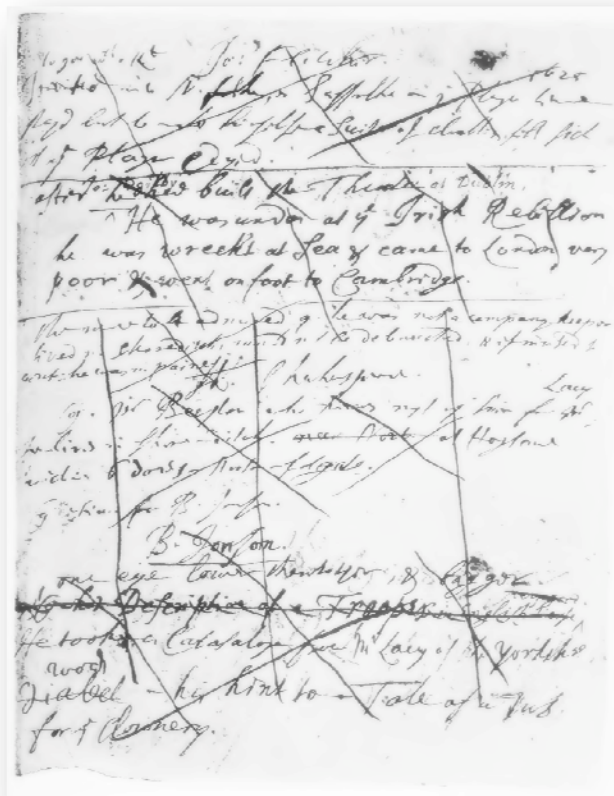 Jo: Fletcher.
invited into Norfolke or Suffolke in ye Plague time 1625
stayd but to make himselfe a suite of cloaths fell sick
of ye Plague & dyed.
after built the Theatre at Dublin.
He was undon at ye Irish Rebellion
he was wreckt at Sea & came to London very
poor & went on foot to Cambridge.
the more to be admired q. he was not a company keeper
lived in Shoreditch, wouldnt be debauched, & if invited to
writ: he was in paine.
W. Shakespeare.
q. Mr Beeston who knows most of him fr Mr Lacy
he lives in Shoreditch at Hoglane
within 6 dores Norton-folgate.
q etiam for B. Jonson.
B. Jonson.
one eye lower then tother & bigger
Description of a Trooper
He tooke a Catalogue from Mr Lacy of the Yorkshire
words his hint to a Tale of a Tub
for ye Clownery.